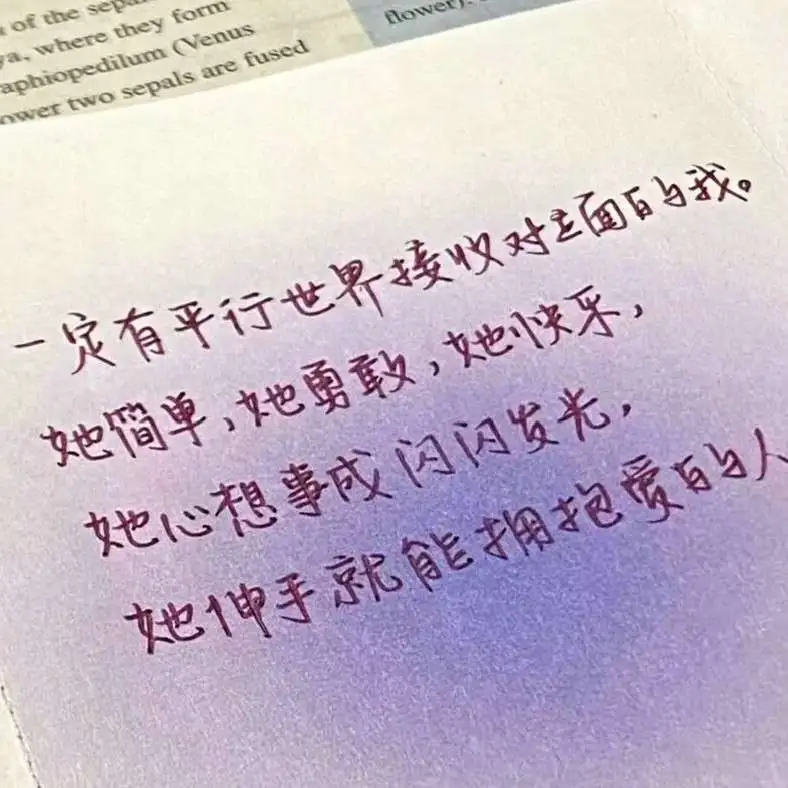 of the sepa
ya, where they form
aphiopedilum (Venus
ower two sepals are fused
flower).
一定有平行世界接收对立面的我。
她简单,她勇敢,她快乐,
她心想事成闪闪发光,
她伸手就能拥抱爱的人